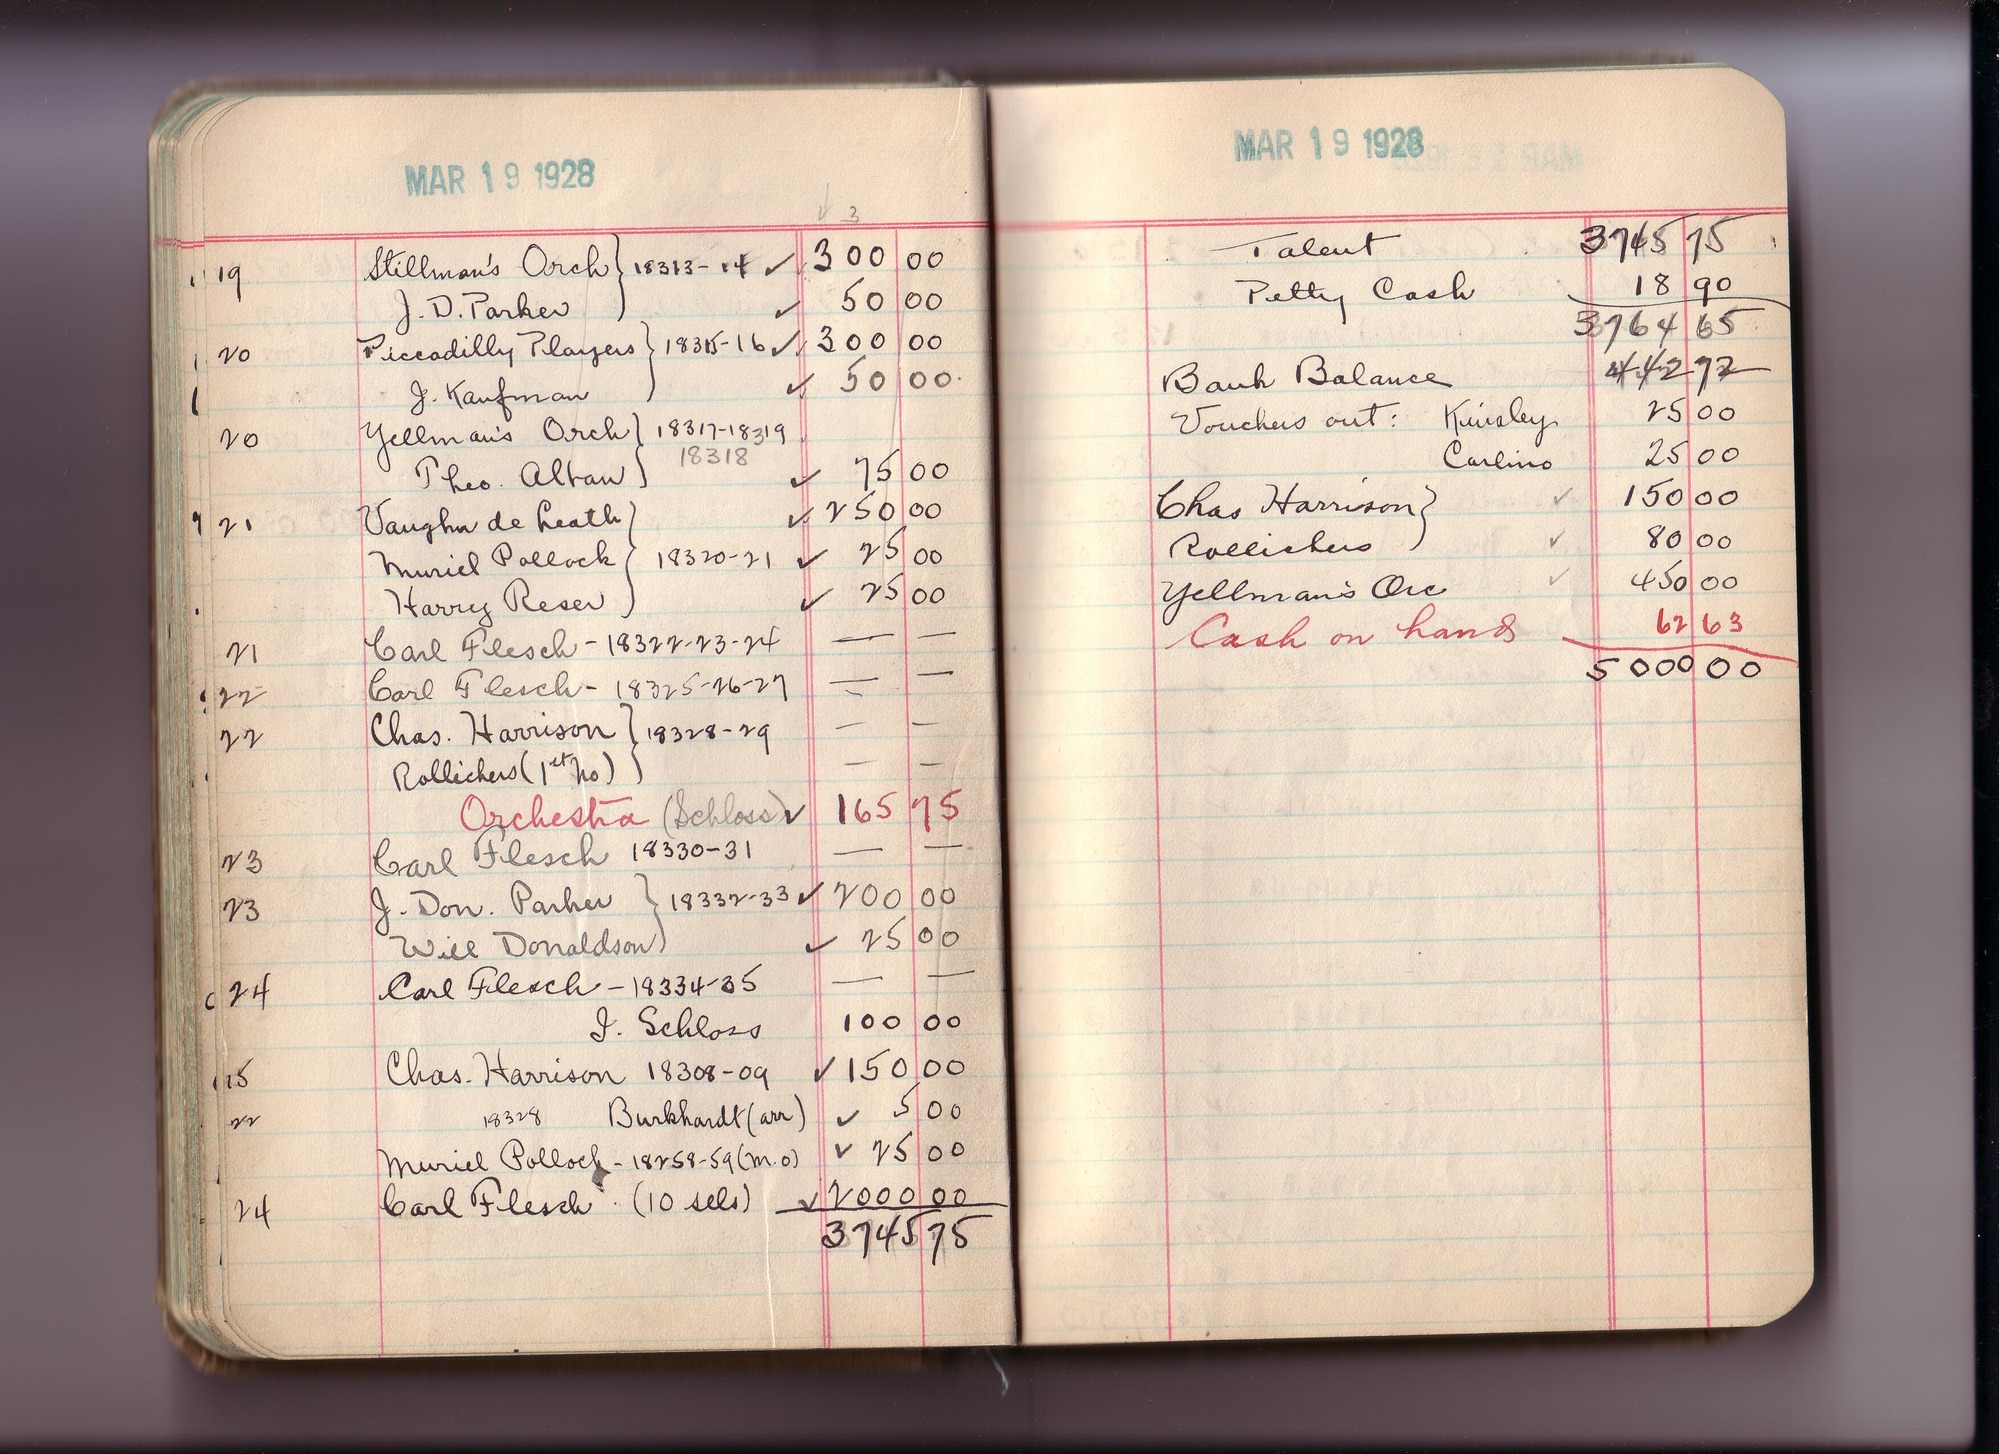 MAR 19 1928
3
19 Stillman's Orch } 18313-14 ✓ 300 00
J. D. Parker ✓ 50 00
20 Piccadilly Players } 18315-16 ✓ 300 00
J. Kaufman ✓ 50 00
20 Yellman's Orch } 18317-18319
18318
Theo. Altan ✓ 75 00
21 Vaughn de Leath } ✓ 250 00
Muriel Pollock 18320-21 ✓ 25 00
Harry Reser ✓ 25 00
21 Carl Flesch - 18322-23-24 — —
22 Carl Flesch - 18325-26-27 — —
22 Chas. Harrison } 18328-29 — —
Rollickers (1st no) — —
Orchestra (Schloss) ✓ 165 75
23 Carl Flesch 18330-31 — —
23 J. Don. Parker } 18332-33 ✓ 200 00
Will Donaldson ✓ 25 00
24 Carl Flesch - 18334-35 — —
I. Schloss 100 00
15 Chas. Harrison 18308-09 ✓ 150 00
22 18328 Burkhardt (arr) ✓ 5 00
Muriel Pollock - 18258-59 (m.o) ✓ 25 00
24 Carl Flesch (10 sels) ✓ 2000 00
3745 75
MAR 19 1928
Talent 3745 75
Petty Cash 18 90
3764 65
Bank Balance 442 72
Vouchers out: Kinsley 25 00
Carlino 25 00
Chas Harrison } ✓ 150 00
Rollickers ✓ 80 00
Yellman's Orc ✓ 450 00
Cash on hand 62 63
5000 00